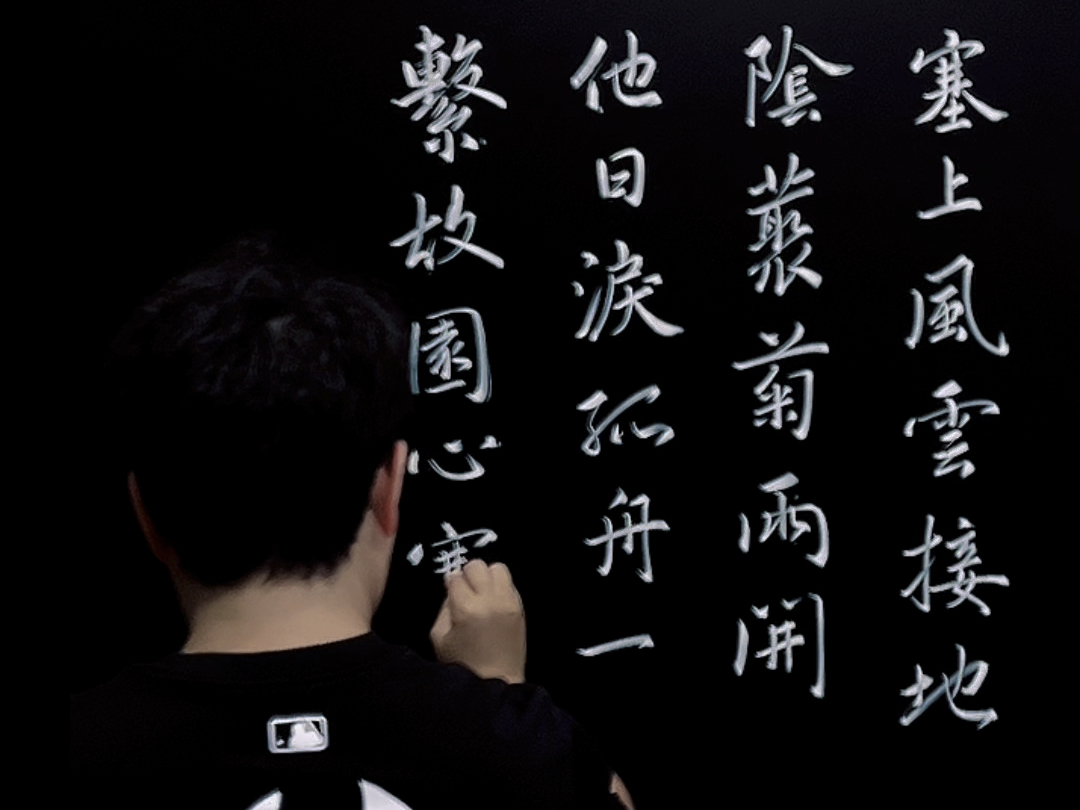 塞上風雲接地
陰藂菊兩開
他日淚孤舟一
繫故園心